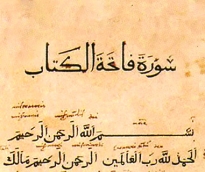 سورة فاتحة الكتاب
بسم الله الرحمن الرحيم
الحمد لله رب العالمين الرحمن الرحيم مالك